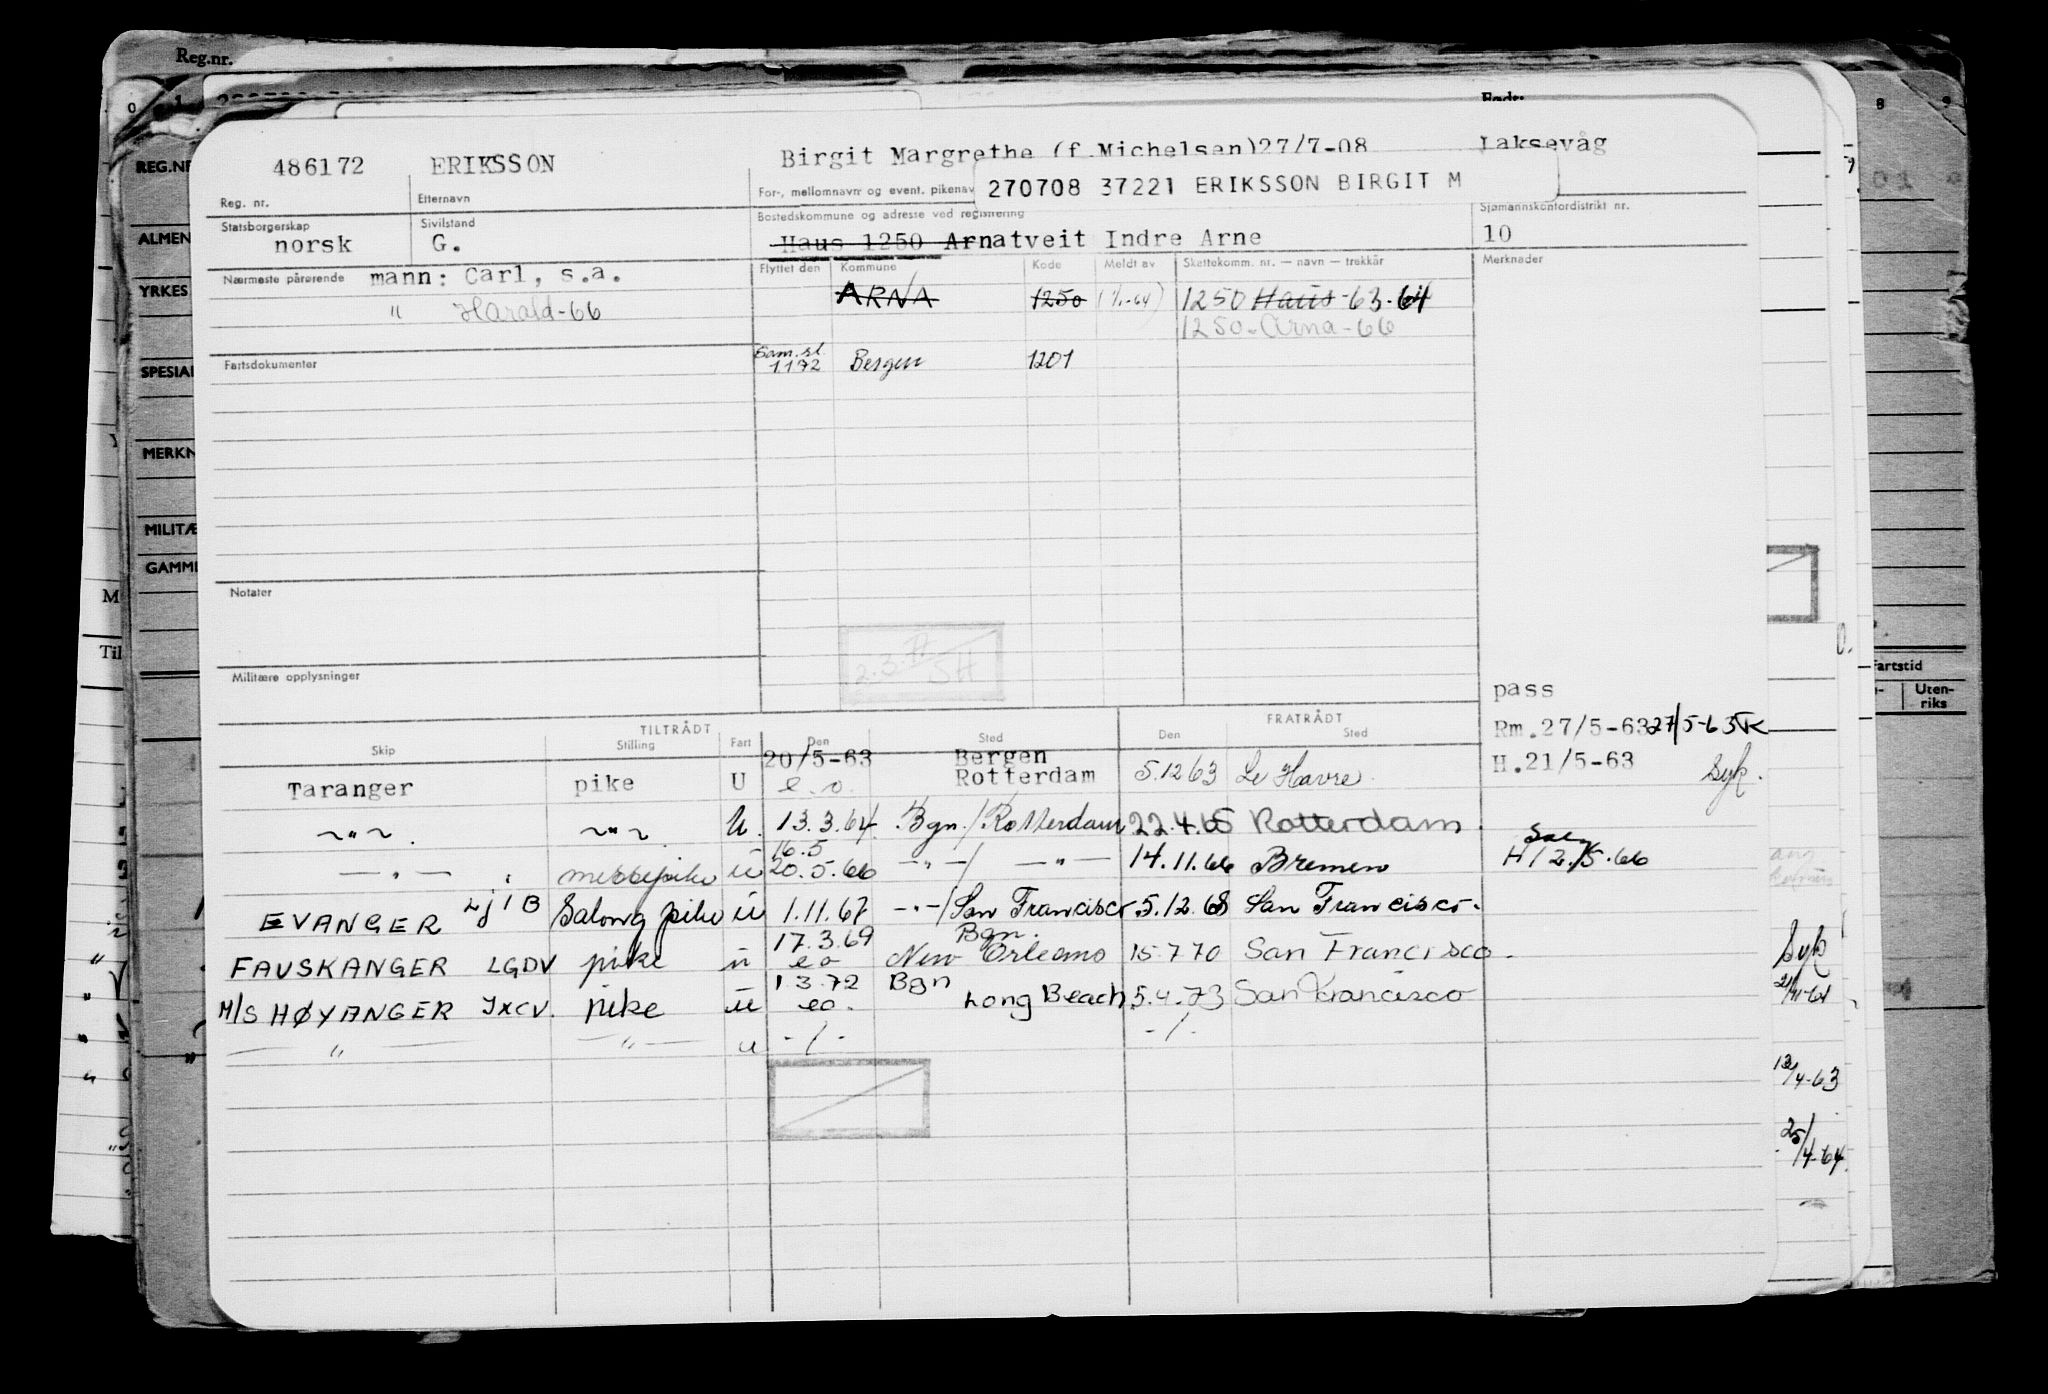 Reg.nr.
Født:
8 9
486172 ERIKSSON Birgit Margrethe (f.Michelsen)27/7-08 Laksevåg
Reg. nr. Etternavn For-, mellomnavn og event. pikenav
270708 37221 ERIKSSON BIRGIT M
Statsborgerskap Sivilstand Bostedskommune og adresse ved registrering Sjømannskontordistrikt nr.
norsk G. Haus 1250 Arnatveit Indre Arne 10
Nærmeste pårørende mann: Carl, s.a. Flyttet den Kommune Kode Meldt av Skattekomm. nr. — navn — trekkår Merknader
" Harald-66 ARNA 1250 (1/1-64) 1250 Haus-63-64
1250-Arna-66
Fartsdokumenter Sam.sl. 1.1 72 Bergen 1201
Notater
2.3.77 SH
Militære opplysninger
pass
TILTRÅDT FRATRÅDT Rm.27/5-63 27/5-63 TK
Skip Stilling Fart Den Sted Den Sted
20/5-63 Bergen H.21/5-63
Taranger pike U e.o. Rotterdam 5.12 63 Le Havre. Syk.
~"~. ~"~ U. 13.3.64 Bgn./Rotterdam 22.4.65 Rotterdam.
16.5
—"— messepike u 20.5.66 —"—/ —"— 14.11.66 Bremen H/2/5.66
EVANGER LJIB Salong pike u 1.11.67 -"-/San Francisco 5.12.68 San Francisco.
17.3.69 Bgn.
FAUSKANGER LGDV pike u eo New Orleans 15 7 70 San Francisco.
1.3.72 Bgn
M/S HØYANGER JXCV. pike u eo. Long Beach 5.4.73 San Francisco
—"— —"— u -/- -/-
REG.NR
ALMEN
YRKES
SPESIAL
MERKN
MILITÆ
GAMML
M
Til
Fartstid
Uten-
riks
Syk
21/11-61
13/4-63
25/4-64